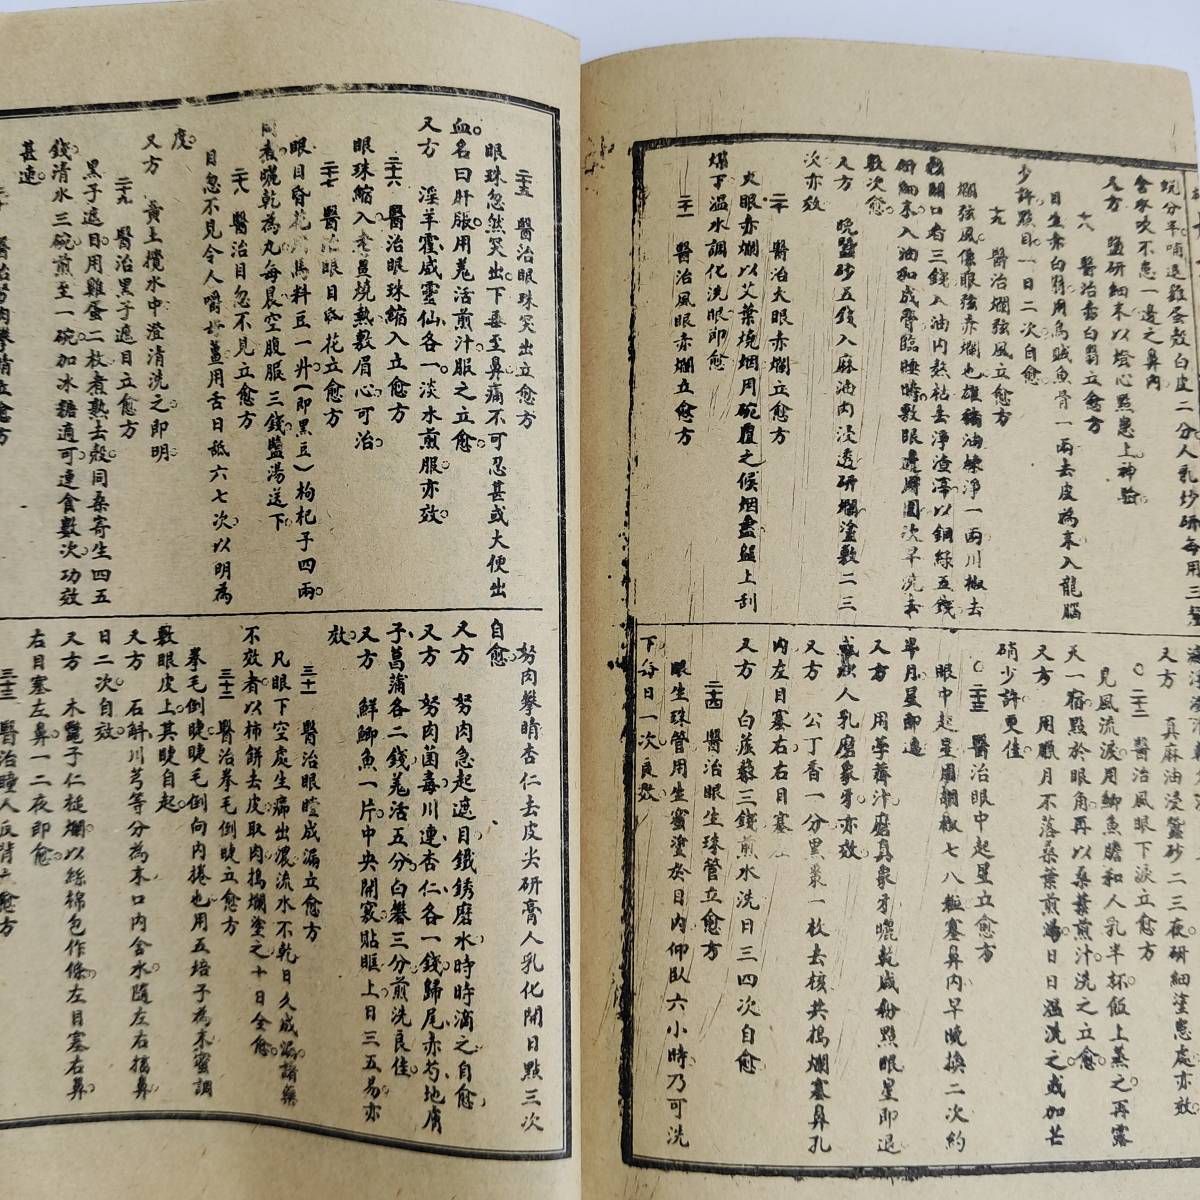 蜕分年哺退雞蛋殼白皮二分人乳炒研每用三釐
含水吹不患一邊之鼻內
又方　鹽研細末以燈心點患上神騐
十八　醫治青白翳立愈方
目生青白翳用烏賊魚骨一兩去皮為末入龍腦
少許點目一日二次自愈
十九　醫治爛弦風立愈方
爛弦風係眼弦赤爛也雄豬油煉淨一兩川椒去
核開口者三錢入油內熬祜去淨渣滓以銅綠五錢
研細末入油和成膏臨睡時敷眼邊周圍次早洗去
數次愈
又方　晚蠶砂五錢入麻油內浸透研爛塗敷二三
次亦效
二十　醫治火眼赤爛立愈方
火眼赤爛以艾葉燒烟用碗覆之候烟盡碗上刮
煤下溫水調化洗眼即愈
二十一　醫治風眼赤爛立愈方
又方　真麻油浸蠶砂二三夜研細塗患處亦效
二十二　醫治風眼下淚立愈方
見風流淚用鯽魚膽和人乳半杯飯上蒸之再露
天一宿點於眼角再以桑葉煎汁洗之立愈
又方　用臘月不落桑葉煎湯日日溫洗之或加芒
硝少許更佳
二十三　醫治眼中起星立愈方
眼中起星用胡椒七八粒塞鼻內早晚換二次約
半月星即退
又方　用荸薺汁磨真象牙曬乾成粉點眼星即退
或以人乳磨象牙亦效
又方　公丁香一分黑棗一枚去核共搗爛塞鼻孔
內左目塞右右目塞左
又方　白蒺藜三錢煎水洗日三四次自愈
二十四　醫治眼生珠管立愈方
眼生珠管用生蜜塗於目內仰臥六小時乃可洗
下每日一次良效
二十五　醫治眼珠突出立愈方
眼珠忽然突出下垂至鼻痛不可忍甚或大便出
血名曰肝脹用羌活煎汁服之立愈
又方　淫羊霍威靈仙各一淡水煎服亦效
二十六　醫治眼珠縮入立愈方
眼珠縮入老薑燒熱敷眉心可治
二十七　醫治眼目昏花立愈方
眼目昏花用馬料豆一升(即黑豆)枸杞子四兩
同煮曬乾為丸每晨空腹服三錢鹽湯送下
二十八　醫治目忽不見立愈方
目忽不見令人嚼生薑用舌日舐六七次以明為
度
又方　黃土攪水中澄清洗之即明
二十九　醫治黑子遮目立愈方
黑子遮目用雞蛋二枚煮熟去殼同桑寄生四五
錢清水三碗煎至一碗加冰糖適可連食數次功效
甚速
三十　醫治努肉攀睛立愈方
努肉攀睛杏仁去皮尖研膏人乳化開日點三次
自愈
又方　努肉急起遮目鐵銹磨水時時滴之自愈
又方　努肉菌毒川連杏仁各一錢歸尾赤芍地膚
子菖蒲各二錢羌活五分白礬三分煎洗良佳
又方　鮮鯽魚一片中央開竅貼眶上日三五易亦
效
三十一　醫治眼瞠成漏立愈方
凡眼下空處生癤出濃流水不乾日久成漏諸藥
不效者以柿餅去皮取肉搗爛塗之十日全愈
三十二　醫治拳毛倒睫立愈方
拳毛倒睫睫毛倒向內捲也用五培子為末蜜調
敷眼皮上其睫自起
又方　石斛川芎等分為末口內含水隨左右搐鼻
日二次自效
又方　木鱉子仁槌爛以絲棉包作條左目塞右鼻
右目塞左鼻一二夜即愈
三十三　醫治瞳人反背立愈方